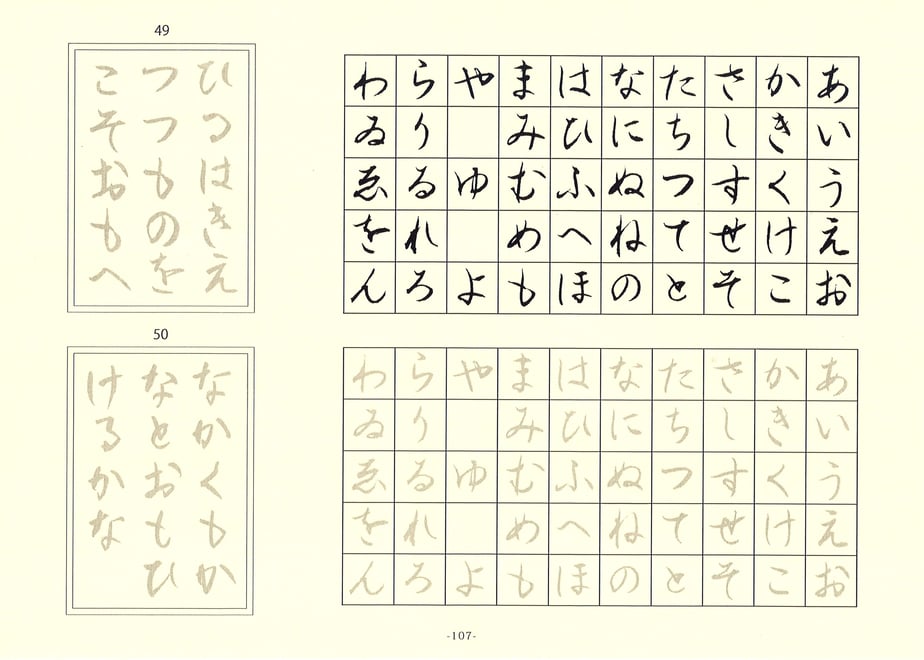 あいうえお
かきくけこ
さしすせそ
たちつてと
なにぬねの
はひふへほ
まみむめも
やゆよ
らりるれろ
わゐゑをん
あいうえお
かきくけこ
さしすせそ
たちつてと
なにぬねの
はひふへほ
まみむめも
やゆよ
らりるれろ
わゐゑをん
49
ひるはきえ
つつものを
こそおもへ
50
なかくもか
なとおもひ
けるかな
-107-